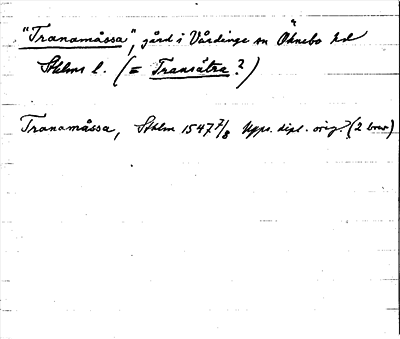 "Tranamåssa", gård i Vårdinge sn Öknebo hd
Sthlms l. (= Transätra?)
Tranamåssa, Sthlm 1547 7/8 Upps. dipl. orig. (2 brev)